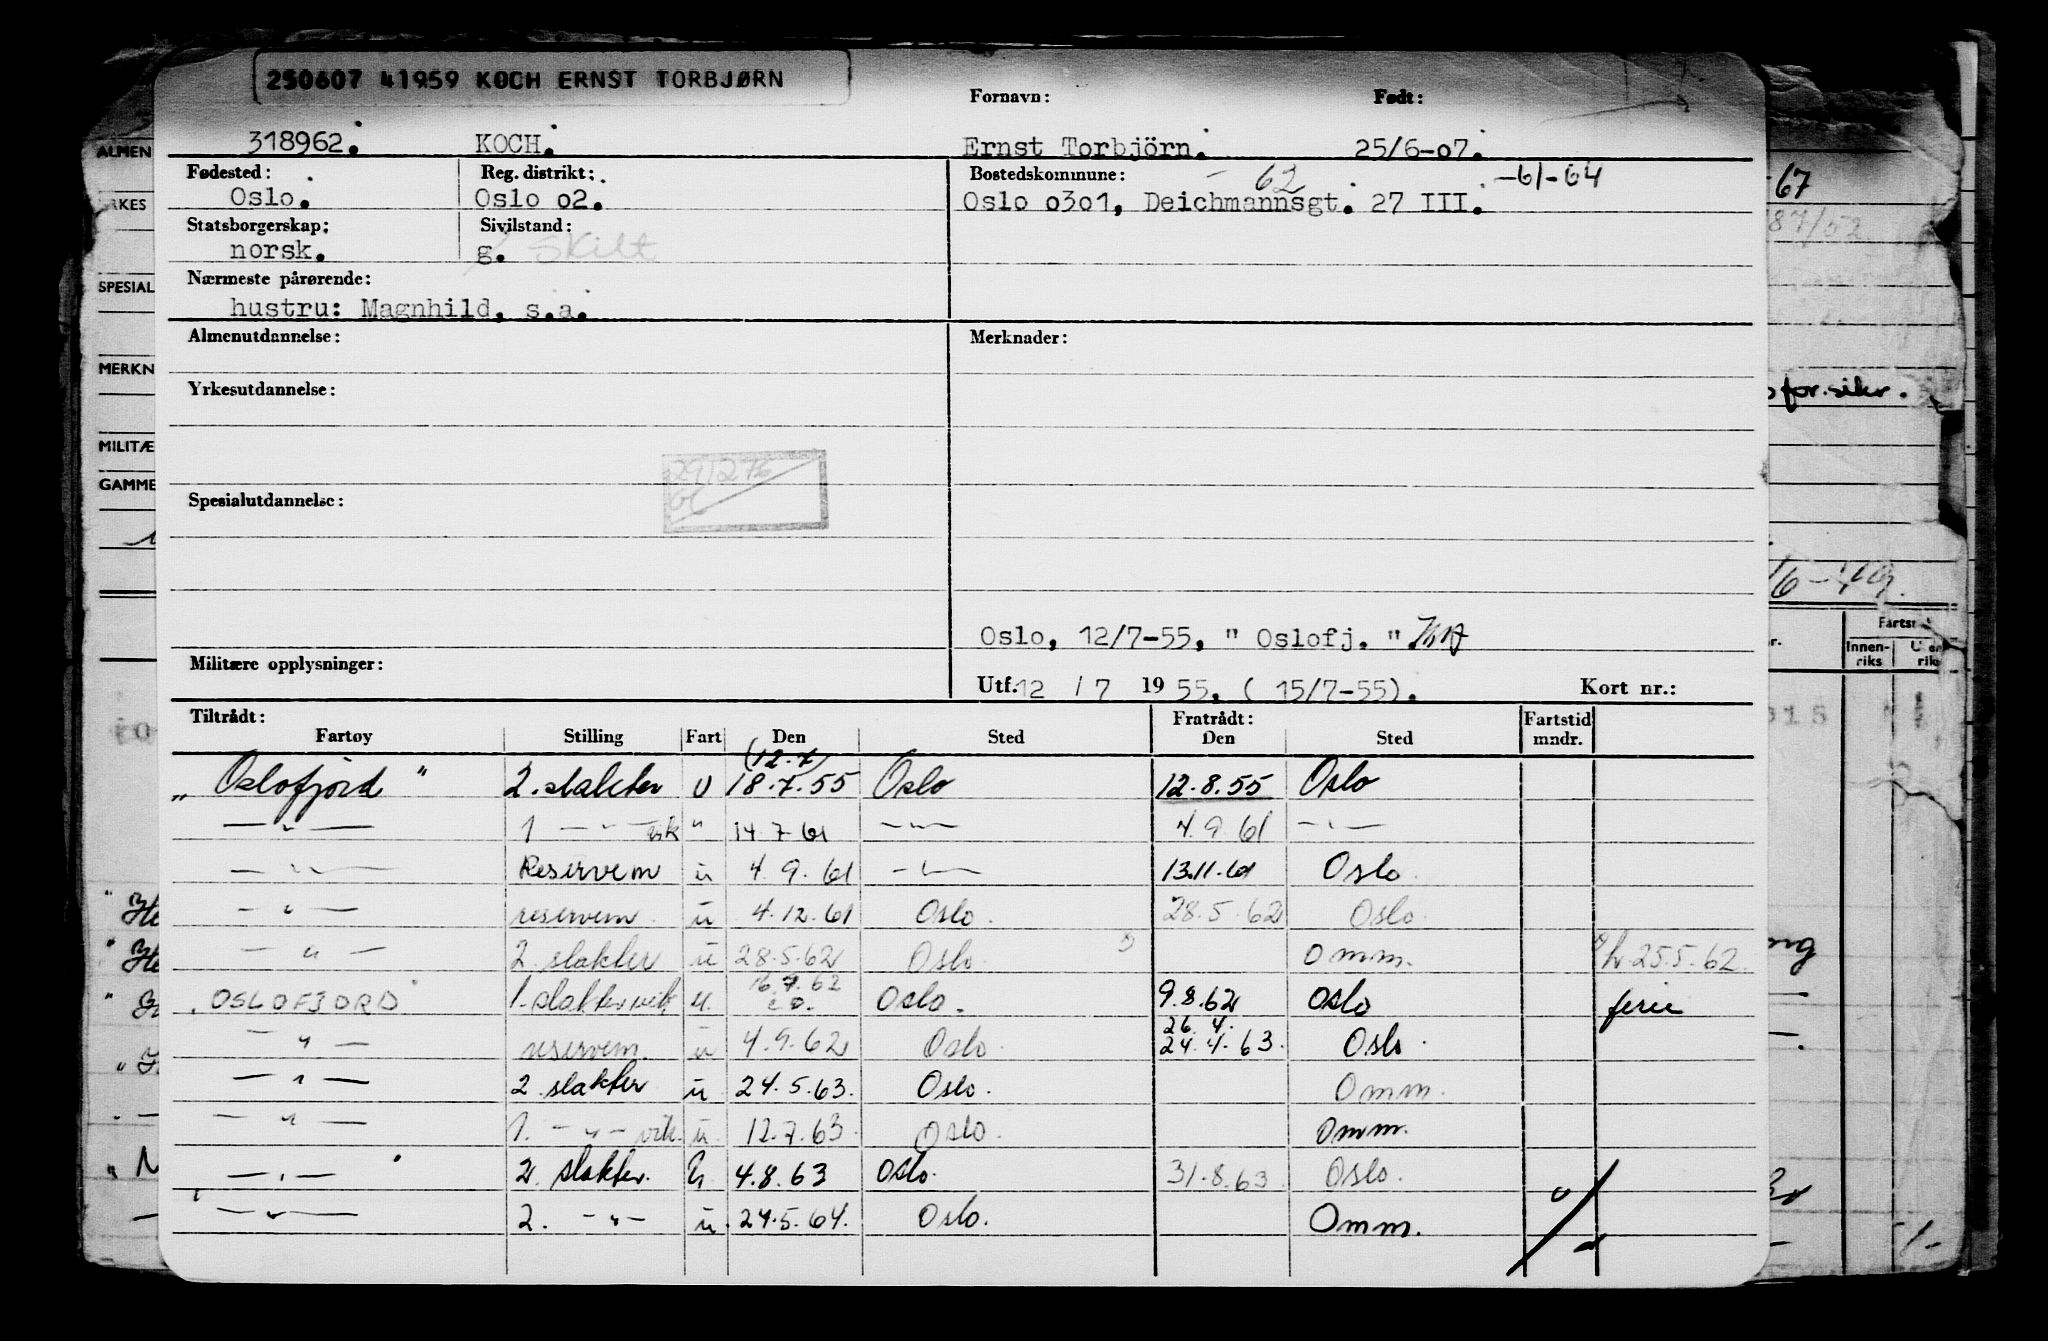 250607 41959 KOCH ERNST TORBJØRN
Fornavn: Født:
318962. KOCH. Ernst Torbjörn. 25/6-07.
Fødested: Reg. distrikt: Bostedskommune: - 62 -61-64
Oslo. Oslo 02. Oslo 0301, Deichmannsgt. 27 III.
Statsborgerskap: Sivilstand:
norsk. g. skilt
Nærmeste pårørende:
hustru: Magnhild, s.a.
Almenutdannelse: Merknader:
Yrkesutdannelse:
291276
Spesialutdannelse:
Oslo, 12/7-55, " Oslofj. "
Militære opplysninger:
Utf. 12 / 7 19 55. ( 15/7-55). Kort nr.:
Tiltrådt: Fratrådt: Fartstid
Fartøy Stilling Fart Den Sted Den Sted mndr.
(12.7)
„ Oslofjord " 2. slakter U 18.7.55 Oslo 12.8.55 Oslo
— " — 1 — " — vik " 14.7.61 — " — 4.9.61 — " —
— " — Reservem u 4.9.61 — " — 13.11.61 Oslo.
— " — reservem. u 4.12.61 Oslo. 28.5.62 Oslo.
— " — 2. slakter u 28.5.62 Oslo. Omm. 25.5.62.
16.7.62
"OSLOFJORD" 1. slakter vik. u. Oslo. 9.8.62 Oslo ferie
26. 4.
— " — reservem. u 4.9.62 Oslo. 24.4.63. Oslo.
— " — 2 slakter u 24.5.63. Oslo. Omm.
— " — 1. — " — vik. u. 12.7.63. Oslo. Omm.
— " — 2. slakter. u. 4.8.63 Oslo. 31.8.63. Oslo.
— " — 2. — " — u. 24.5.64. Oslo. Omm.
ALMEN
SPESIAL
MERKN
MILITÆ
GAMME
67
87/52
for.sikr.
Fartst
Innen-
riks